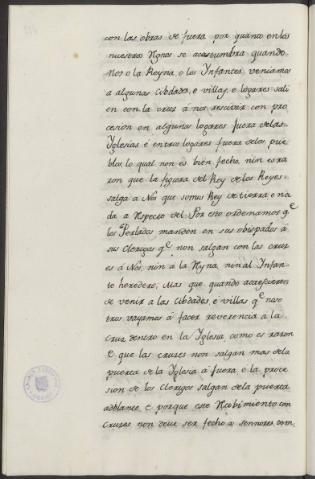 con las obras de fuera por quanto en los
nuestros Rgnos se acostumbra quando
Nos o la Reyna, o los Infantes veniamos
a algunas cibdades, e villas, e logares sali
en con la cruz a nos rescivir con pro
cesion en algunos logares fuera delas
Iglesias é en tros logares fuera delos pue
blos lo qual non es bien fecho, nin es ra
zon que la figura del Rey de los Reyes
salga a Nos que somos Rey de tierra e na
da a respecto del. Por esto ordenamos qe
los Perlados manden en sus obispados á
sus Clerigos qe non salgan con las cruz
es á Nos, nin á la Rna, nin al Infan
te heredero, Mas que quando acaesciere
de venir a las cibdades é villas qe nos
tros vayamos á facer reverencia á la
cruz dentro en la Iglesia como es razon
E que las cruzes non salgan mas dela
puerta de la Iglesia á fuera, e la proce
sion de los Clerigos salgan dela puerta
adelante, é porque este Recibimiento con
Cruzes non deve ser fecho a sennores